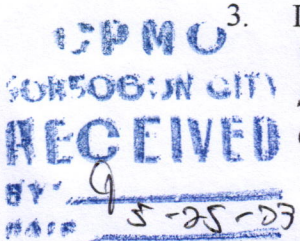 CPMO 3.
SORSOGON CITY
RECEIVED
BY:
DATE 5-25-03